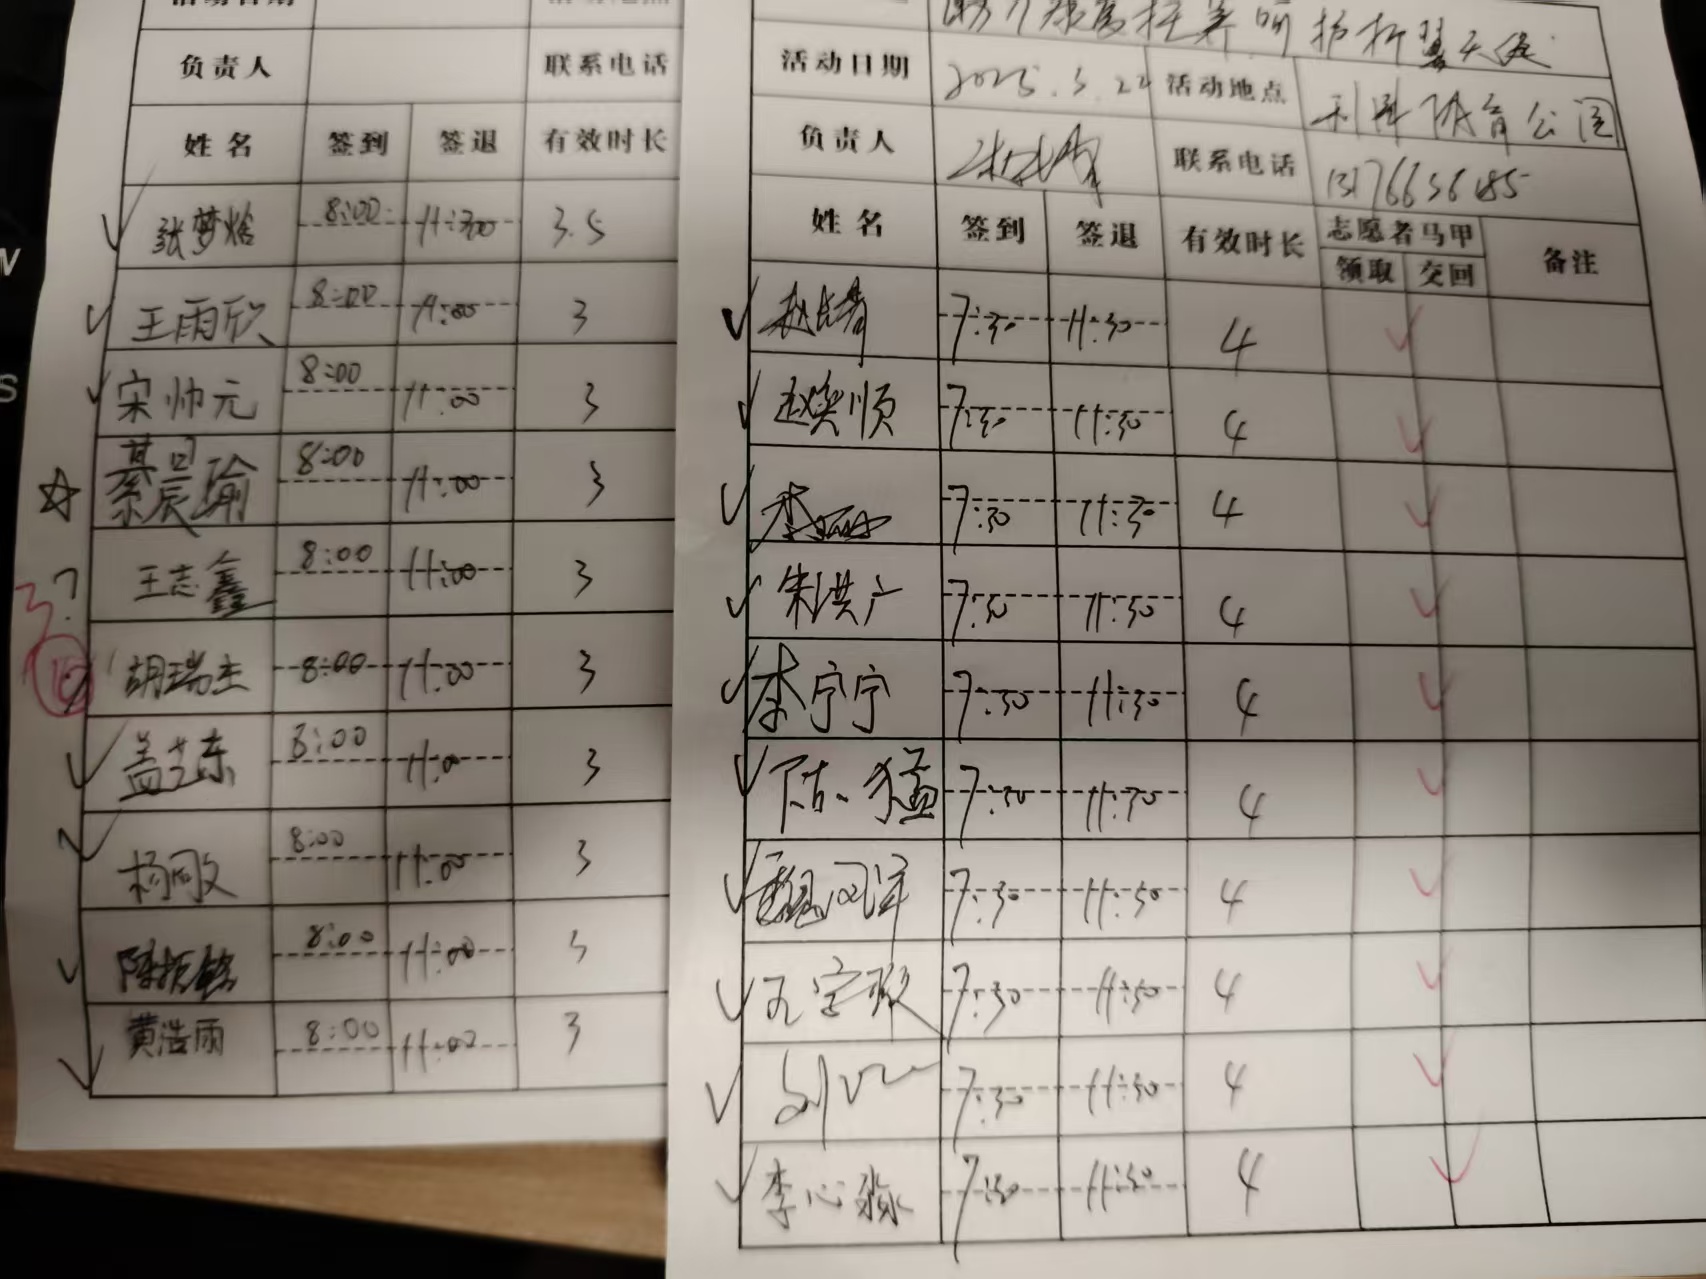 负责人 联系电话
姓名 签到 签退 有效时长
张梦 8:00 11:30 3.5
王雨欣 8:00 11:00 3
宋帅元 8:00 11:00 3
綦晨瑜 8:00 11:00 3
王志鑫 8:00 11:00 3
胡瑞杰 8:00 11:00 3
盖艺东 8:00 11:00 3
杨 8:00 11:00 3
陈振 8:00 11:00 3
黄浩雨 8:00 11:00 3
康 托养 呵护折翼天使
活动日期 2025.3.22 活动地点 利津体育公园
负责人 联系电话
姓名 签到 签退 有效时长 志愿者马甲 备注
领取 交回
赵 7:30 11:30 4
赵奥顺 7:30 11:30 4
李 7:30 11:30 4
朱洪广 7:30 11:30 4
李宁宁 7:30 11:30 4
陈猛 7:30 11:30 4
魏 7:30 11:30 4
7:30 11:30 4
刘 7:30 11:30 4
李心淼 7:30 11:30 4